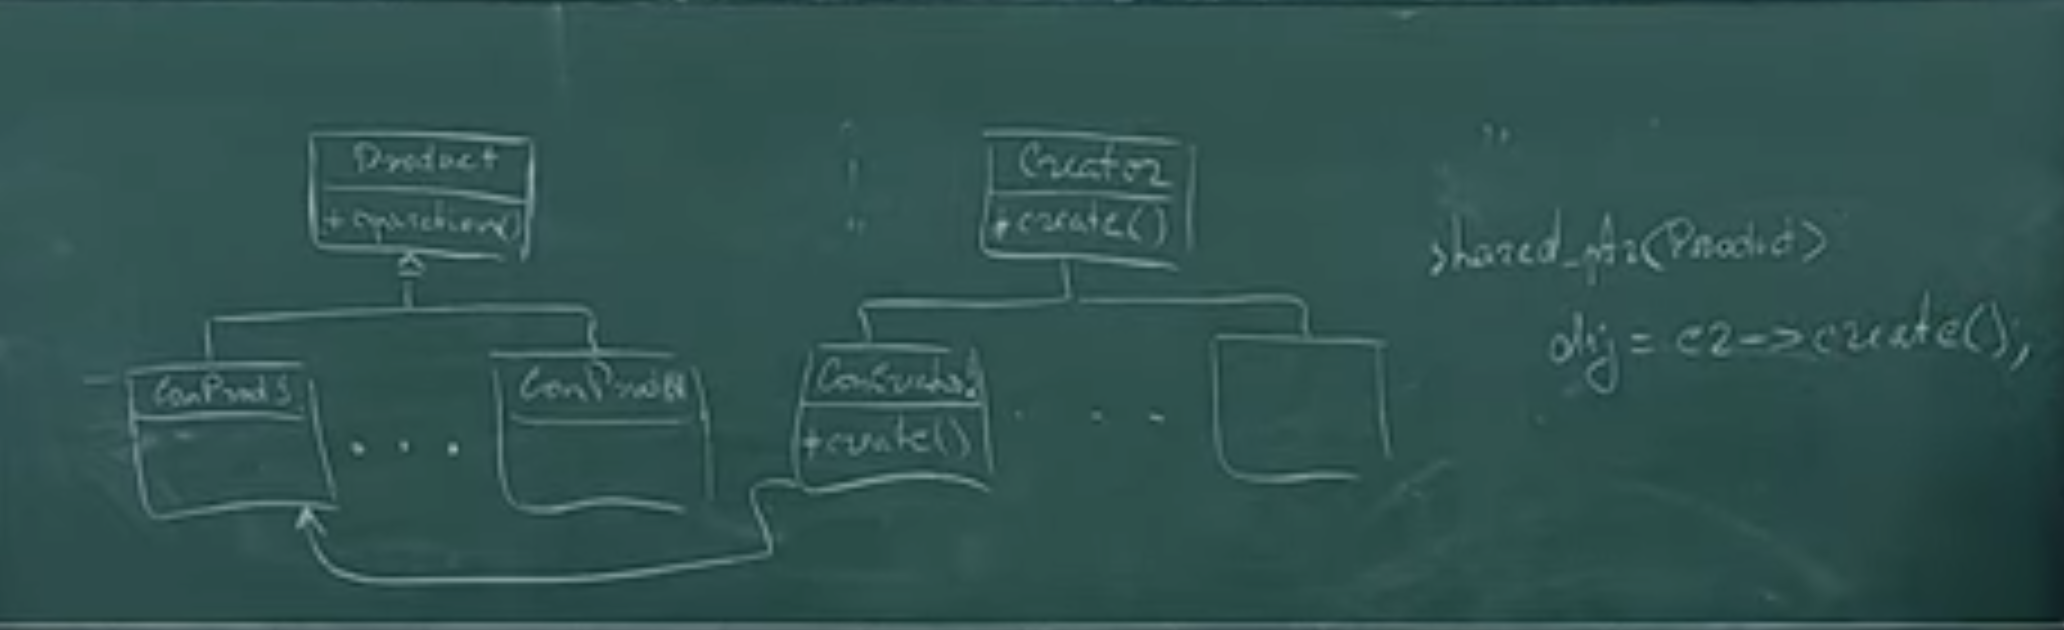 Product
+ operation()
ConProd1
ConProdN
Creator
+ create()
ConCreator1
+ create()
shared_ptr<Product>
obj = cr->create();